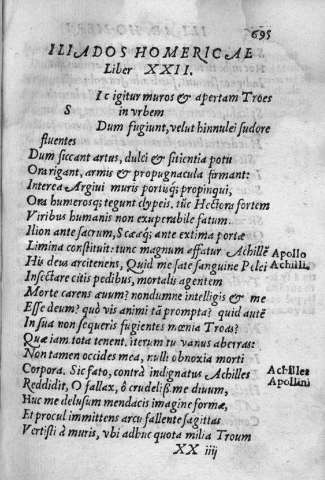 695
ILIADOS HOMERICAE
Liber XXII.
S Ic igitur muros & apertam Troes
in vrbem
Dum fugiunt, velut hinnulei sudore
fluentes
Dum siccant artus, dulci & sitientia potu
Ora rigant, armis & propugnacula firmant:
Interea Argiui muris portisq; propinqui,
Ora humerosq; tegunt clypeis, tūc Hectora fortem
Viribus humanis non exuperabile fatum
Ilion ante sacrum, Scææq; ante extima portæ
Limina constituit: tunc magnum affatur Achillē
Apollo
His deus arcitenens, Quid me sate sanguine Pelei
Achilli,
Insectare citis pedibus, mortalis agentem
Morte carens æuum? nondumne intelligis & me
Esse deum? quò vis animi tā prompta? quid autē
In sua non sequeris fugientes mœnia Troas?
Quæ iam tota tenent. iterum tu vanus aberras:
Non tamen occides mea, nulli obnoxia morti
Corpora. Sic fato, contrà indignatus Achilles
Achilles
Reddidit, O fallax, ô crudeliß. me diuum,
Apollini
Huc me delusum mendacis imagine formæ,
Et procul immittens arcu fallente sagittas
Vertisti à muris, vbi adhuc quota milia Troum
XX iiij